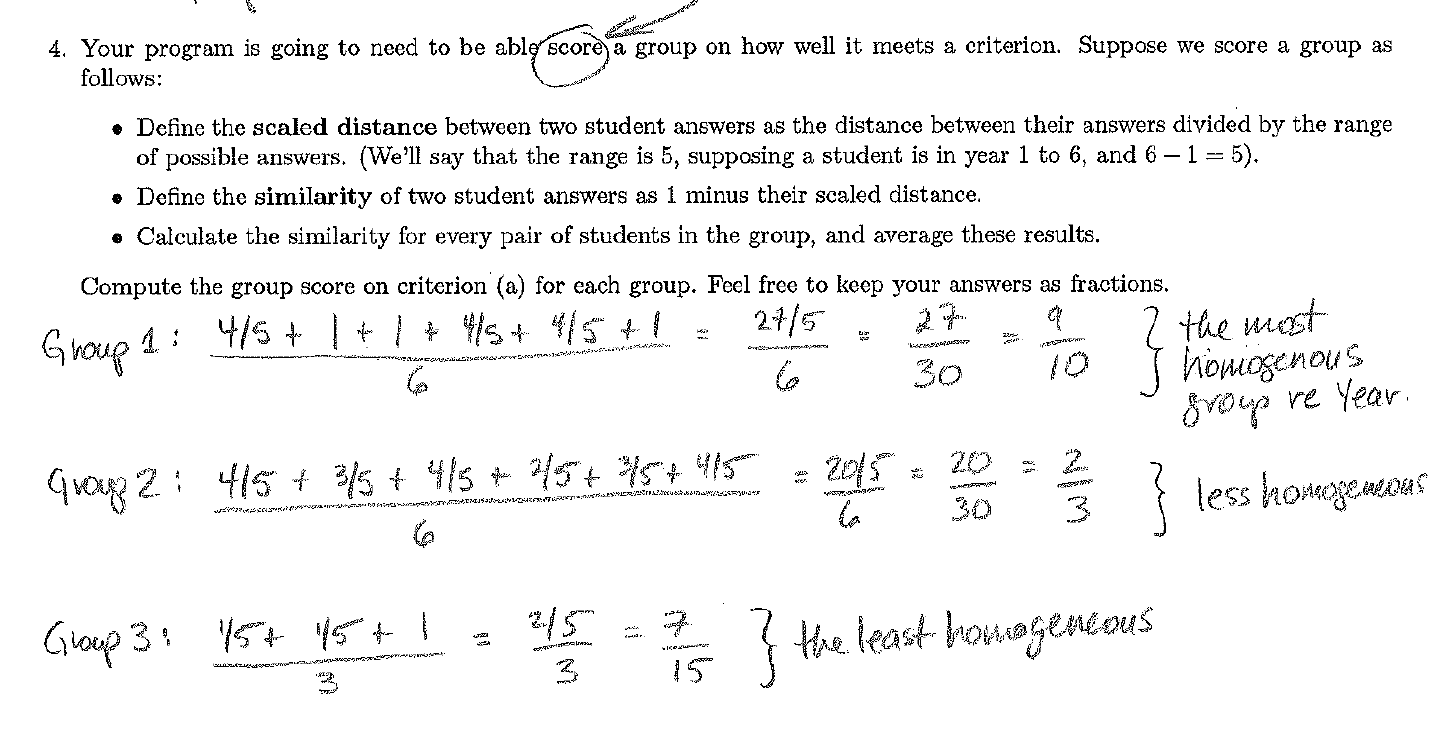 4. Your program is going to need to be able score a group on how well it meets a criterion. Suppose we score a group as
follows:
• Define the scaled distance between two student answers as the distance between their answers divided by the range
of possible answers. (We'll say that the range is 5, supposing a student is in year 1 to 6, and 6 − 1 = 5).
• Define the similarity of two student answers as 1 minus their scaled distance.
• Calculate the similarity for every pair of students in the group, and average these results.
Compute the group score on criterion (a) for each group. Feel free to keep your answers as fractions.
Group 1: 4/5 + 1 + 1 + 4/5 + 4/5 + 1 = 27/5 = 27 = 9 } the most
6 6 30 10 homogenous
group re Year.
Group 2: 4/5 + 3/5 + 4/5 + 2/5 + 3/5 + 4/5 = 20/5 = 20 = 2 } less homogeneous
6 6 30 3
Group 3: 1/5 + 1/5 + 1 = 7/5 = 7 } the least homogeneous
3 3 15